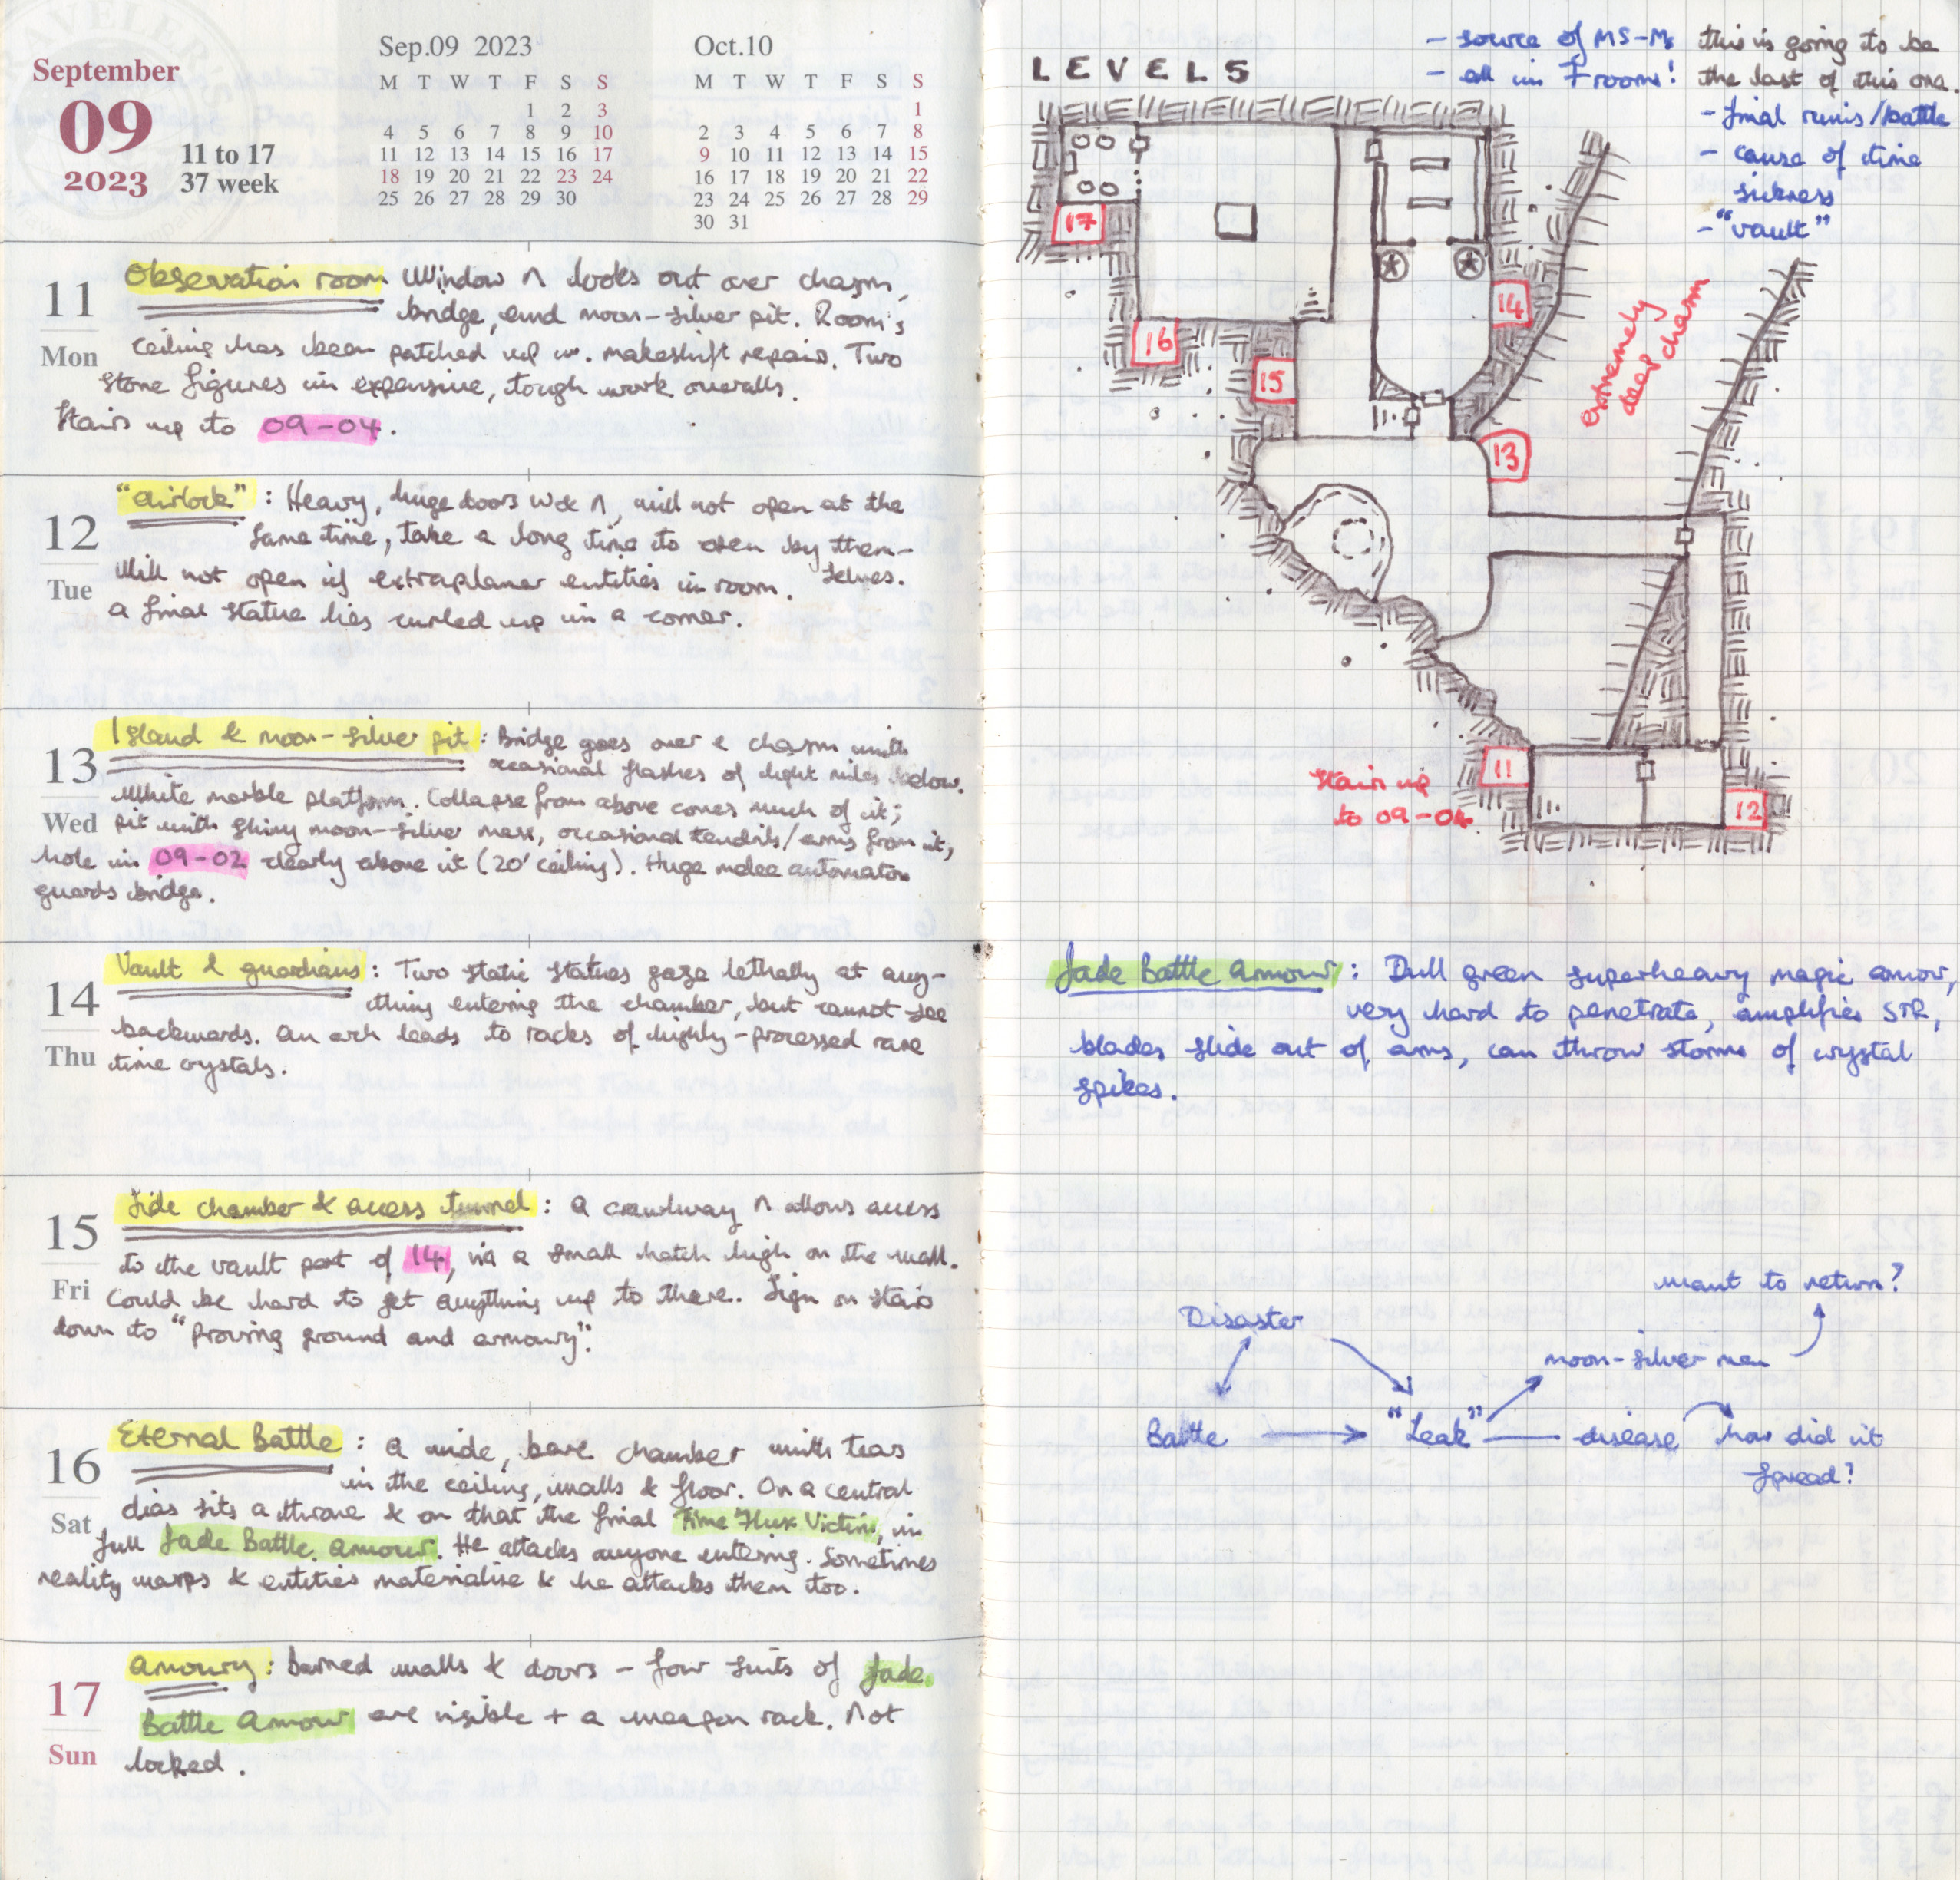 September
09
2023
11 to 17
37 week
Sep.09 2023
M T W T F S S
1 2 3
4 5 6 7 8 9 10
11 12 13 14 15 16 17
18 19 20 21 22 23 24
25 26 27 28 29 30
Oct.10
M T W T F S S
1
2 3 4 5 6 7 8
9 10 11 12 13 14 15
16 17 18 19 20 21 22
23 24 25 26 27 28 29
30 31
11
Mon
Observation room Window N looks out over chasm,
bridge, and moon-silver pit. Room's
ceiling has been patched up w. makeshift repairs. Two
stone figures in expensive, tough work overalls.
Stairs up to 09-04.
12
Tue
"Airlock": Heavy, huge doors W & N, will not open at the
same time, take a long time to open by them-
selves.
Will not open if extraplanar entities in room.
A final statue lies curled up in a corner.
13
Wed
Island & moon-silver pit: Bridge goes over a chasm with
occasional flashes of light miles below.
White marble platform. Collapse from above covers much of it;
pit with shiny moon-silver mass, occasional tendrils/arms from it,
hole in 09-02 clearly above it (20' ceiling). Huge melee automaton
guards bridge.
14
Thu
Vault & guardians: Two static statues gaze lethally at any-
thing entering the chamber, but cannot see
backwards. An arch leads to racks of highly-processed rare
time crystals.
15
Fri
Side chamber & access tunnel: A crawlway N allows access
to the vault part of 14, via a small hatch high on the wall.
Could be hard to get anything up to there. Sign on stairs
down to "Proving ground and armoury".
16
Sat
Eternal Battle: A wide, bare chamber with tears
in the ceiling, walls & floor. On a central
dias sits a throne & on that the final Time Flux Victim, in
full Jade Battle Armour. He attacks anyone entering. Sometimes
reality warps & entities materialise & he attacks them too.
17
Sun
Amoury: Barred walls & doors - four suits of Jade
Battle Armour are visible + a weapon rack. Not
locked.
LEVEL 5
- source of MS-Ms
- all in 7 rooms!
this is going to be
the last of this one.
- final ruins/battle
- cause of time
sickness
- "vault"
17
16
15
14
13
extremely
deep chasm
11
12
Stairs up
to 09-04
Jade Battle Armour: Dull green superheavy magic armour,
very hard to penetrate, amplifies STR,
blades slide out of arms, can throw storms of crystal
spikes.
want to return?
Disaster
moon-silver men
Battle
"Leak"
disease
how did it
spread?